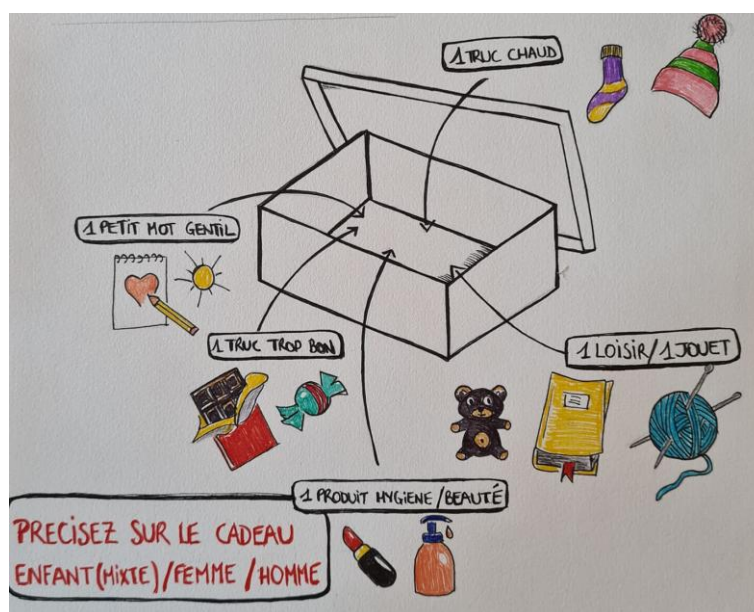 1 TRUC CHAUD
1 PETIT MOT GENTIL
1 TRUC TROP BON
1 LOISIR/1 JOUET
1 PRODUIT HYGIENE/BEAUTÉ
PRECISEZ SUR LE CADEAU
ENFANT(MIXTE)/FEMME/HOMME